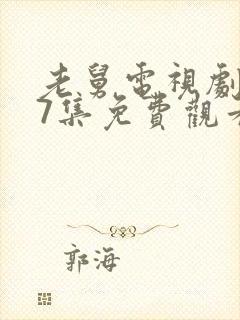 老舅電視劇
7集免費觀看
郭海